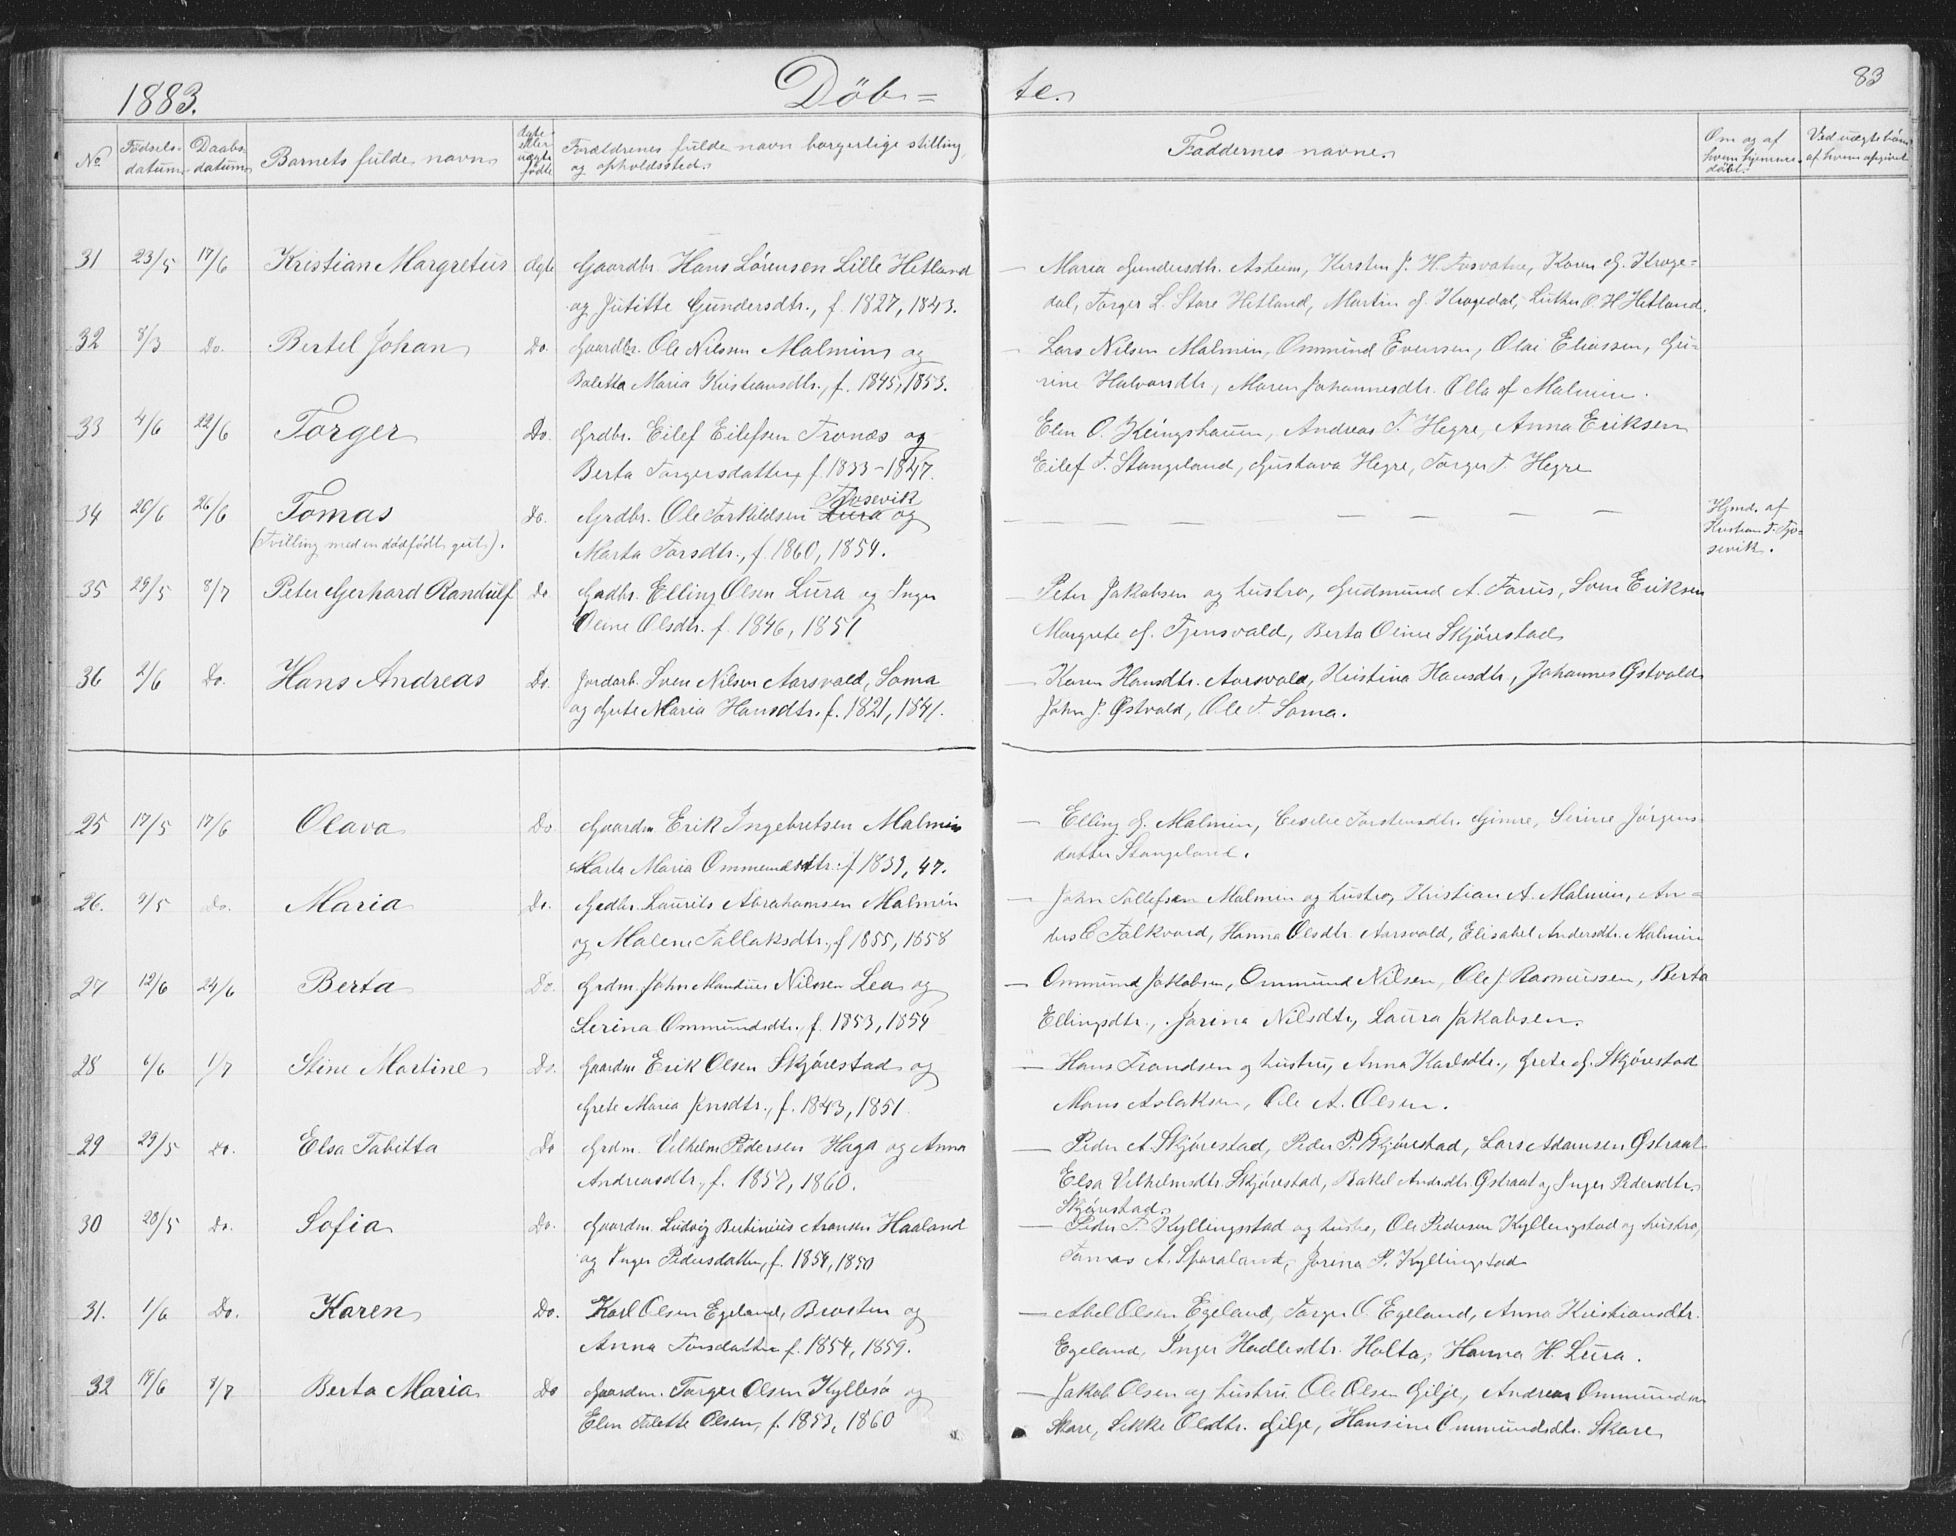 1883. Döb= te. 83
No Fødsels- datum Daabs- datum Barnets fulde navn ægte eller uægte fødte Forældrenes fulde navn borgerlige stilling og opholdssted. Faddernes navne. Om og af hvem hjemme- døbt. Ved uægte børn af hvem opgivet
31 23/5 17/6 Kristian Margretus ægte Gaardbr. Hans Lørensen Lille Hetland — Maria Gundersdtr. Asheim, Kirsten J. H. Fosvatne, Karen G. Kroge-
og Jutitte Gundersdtr., f. 1827, 1843. dal, Torger L. Store Hetland, Martin G. Krogedal, Luther O. H. Hetland.
32 8/3 Do. Bertel Johan Do. Gaardbr. Ole Nilsen Malmin og — Lars Nilsen Malmin, Ommund Evensen, Olai Eliassen, Gu-
Boletta Maria Kristiansdtr., f. 1845, 1853. rine Halvorsdtr, Maren Johannesdtr. Olla af Malmin.
33 4/6 22/6 Torger Do. Grdbr. Eilef Eilefsen Tronæs og Elen O. Klingsheim, Andreas T. Hegre, Anna Eriksen
Berta Torgersdatter, f. 1833-1847. Eilef T. Stangeland, Gustava Hegre, Torger T. Hegre
34 20/6 26/6 Tomas Do. Grdbr. Ole Torkildsen Lura Tjosevik og — — — — — — Hjmd. af
(Tvilling med en dødfødt gut). Marta Torsdtr., f. 1860, 1854. Kristian T. Tjo-
sevik.
35 29/5 8/7 Peter Gerhard Randulf Do Gadbr. Elling Olsen Lura og Inger — Peter Jakobsen og hustro, Gudmund A. Forus, Sven Eriksen
Oline Olsdtr. f. 1846, 1851 Margrete G. Tjensvold, Berta Oline Skjørestad
36 2/6 Do. Hans Andreas Do. Jordarb. Sven Nilsen Aarsvold, Soma — Karen Hansdtr. Aarsvold, Kristina Hansdtr., Johannes Østvold
og Grete Maria Hansdtr. f. 1821, 1841. John J. Østvold, Ole T. Soma.
25 17/5 17/6 Olava Do Gaardm. Erik Ingebretsen Malmin — Elling G. Malmin, Cecilie Torstensdtr. Gimre, Serine Jørgens-
Marta Maria Ommundsdtr. f 1839, 47. datter Stangeland.
26. 9/5 Do. Maria Do. Gadbr. Laurits Abrahamsen Malmin — John Tollefsen Malmin og hustro, Kristian A. Malmin, An-
og Malene Tallaksdtr., f 1855, 1858 ders C Folkvord, Hanna Olsdtr. Aarsvold, Elisabet Andersdtr. Malmin
27 12/6 24/6 Berta Do. Grdm. John Mandius Nilssen Lea og — Ommund Jakobsen, Ommund Nilsen, Ole J. Rasmussen, Berta
Serina Ommundsdtr., f. 1853, 1854 Ellingsdtr., Jorina Nilsdtr, Laura Jakobsen.
28 6/6 1/7 Stine Martine Do. Gaardm Erik Olsen Skjørestad og — Hans Trondsen og hustru, Anna Karlsdtr., Grete G. Skjørestad
Grete Maria Jonsdtr., f. 1843, 1851. Mons Aslaksen, Ole A. Olsen.
29 29/5 Do. Elsa Tabitta Do Grdm. Vilhelm Pedersen Haga og Anna — Peder A. Skjørestad, Peder P. Skjørestad, Lars Adamsen Østraat
Andreasdtr., f. 1857, 1860. Elsa Vilhelmsdtr. Skjørestad, Rakel Andrdtr. Østraat og Inger Pedersdtr.
Skjørestad.
30 28/5 Do. Sofia Do. Gaardm. Ludvig Bertinius Aronsen Haaland — Peder P. Kyllingsstad og hustro, Ole Pedersen Kyllingstad og hustro,
og Inger Pedersdatter, f. 1854, 1850 Tomas A. Sporaland, Jorina P. Kyllingstad
31. 1/6 Do. Karen Do. Karl Olsen Egeland, Brosten og — Abel Olsen Egeland, Torger O. Egeland, Anna Kristiansdtr.
Anna Torsdatter f. 1854, 1859. Egeland, Inger Hadlesdtr. Holta, Hanna H. Lura.
32 18/6 8/7 Berta Maria Do Gaardm. Torger Olsen Kyllesø og — Jakob Olsen og hustru Ole Olsen Gilje, Andreas Ommundsen
Elen Olette Olsen, f. 1853, 1860 Skare, Sikke Olsdtr. Gilje, Hansine Ommundsdtr. Skare